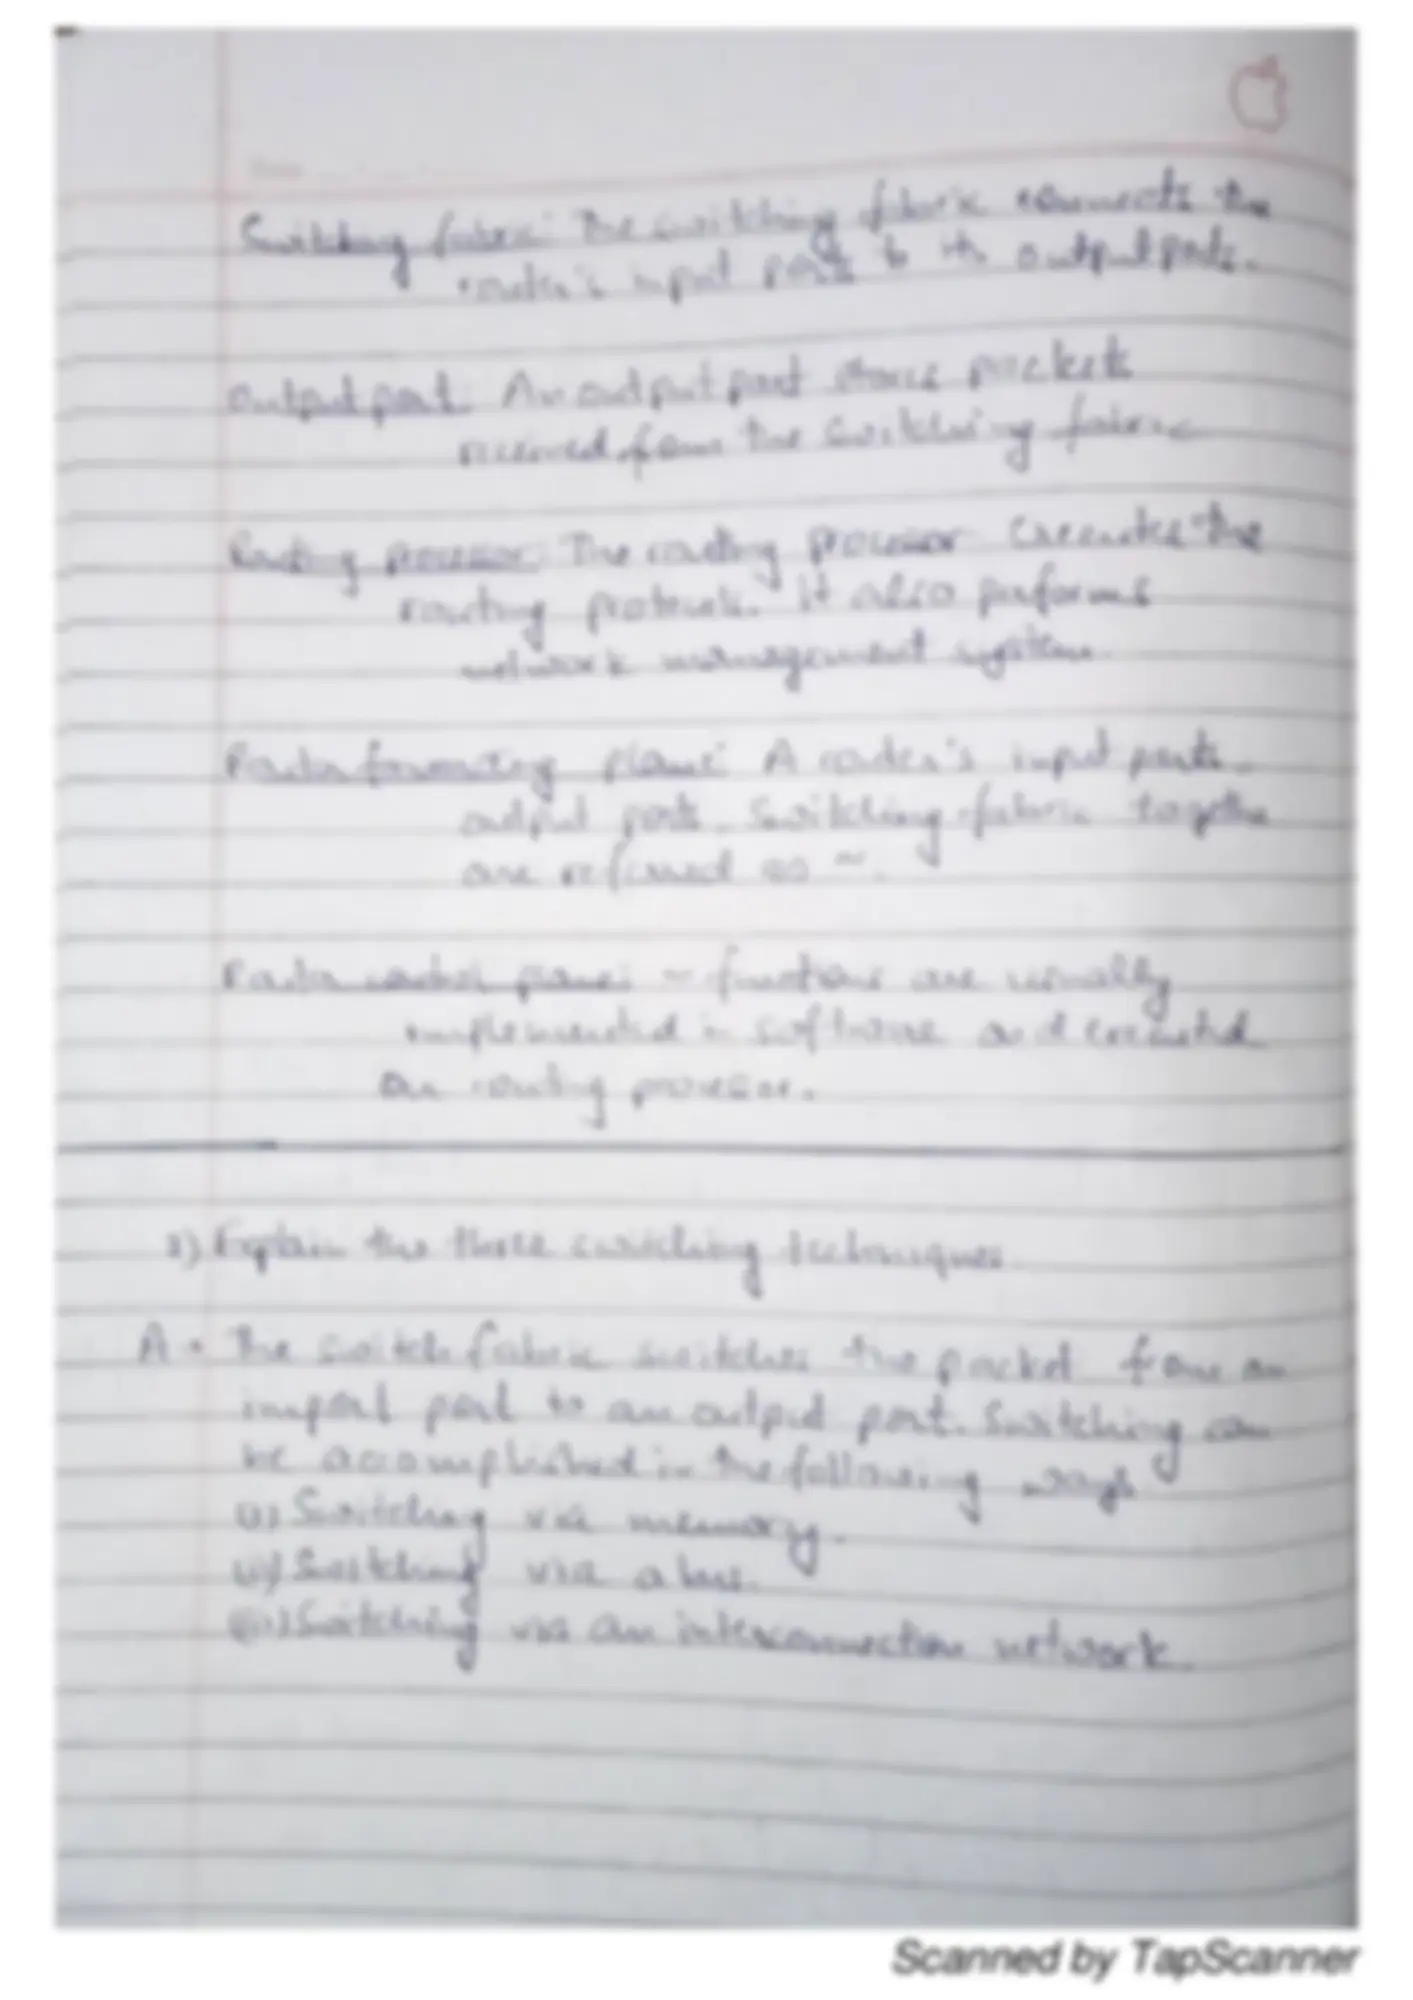 Switching fabric: The switching fabric connects the
router's input ports to its output ports.
Output port: An output port stores packets
received from the switching fabric
Routing processor: The routing processor executes the
routing protocols. It also performs
network management system.
Router forwarding plane: A router's input ports,
output ports, switching fabric together
are referred as ~.
Router control plane: ~ functions are usually
implemented in software and executed
on routing processor.
2) Explain the three switching techniques.
A. The switch fabric switches the packet from an
import port to an output port. Switching can
be accomplished in the following ways
(i) Switching via memory.
(ii) Switching via a bus.
(iii) Switching via an interconnection network.
Scanned by TapScanner